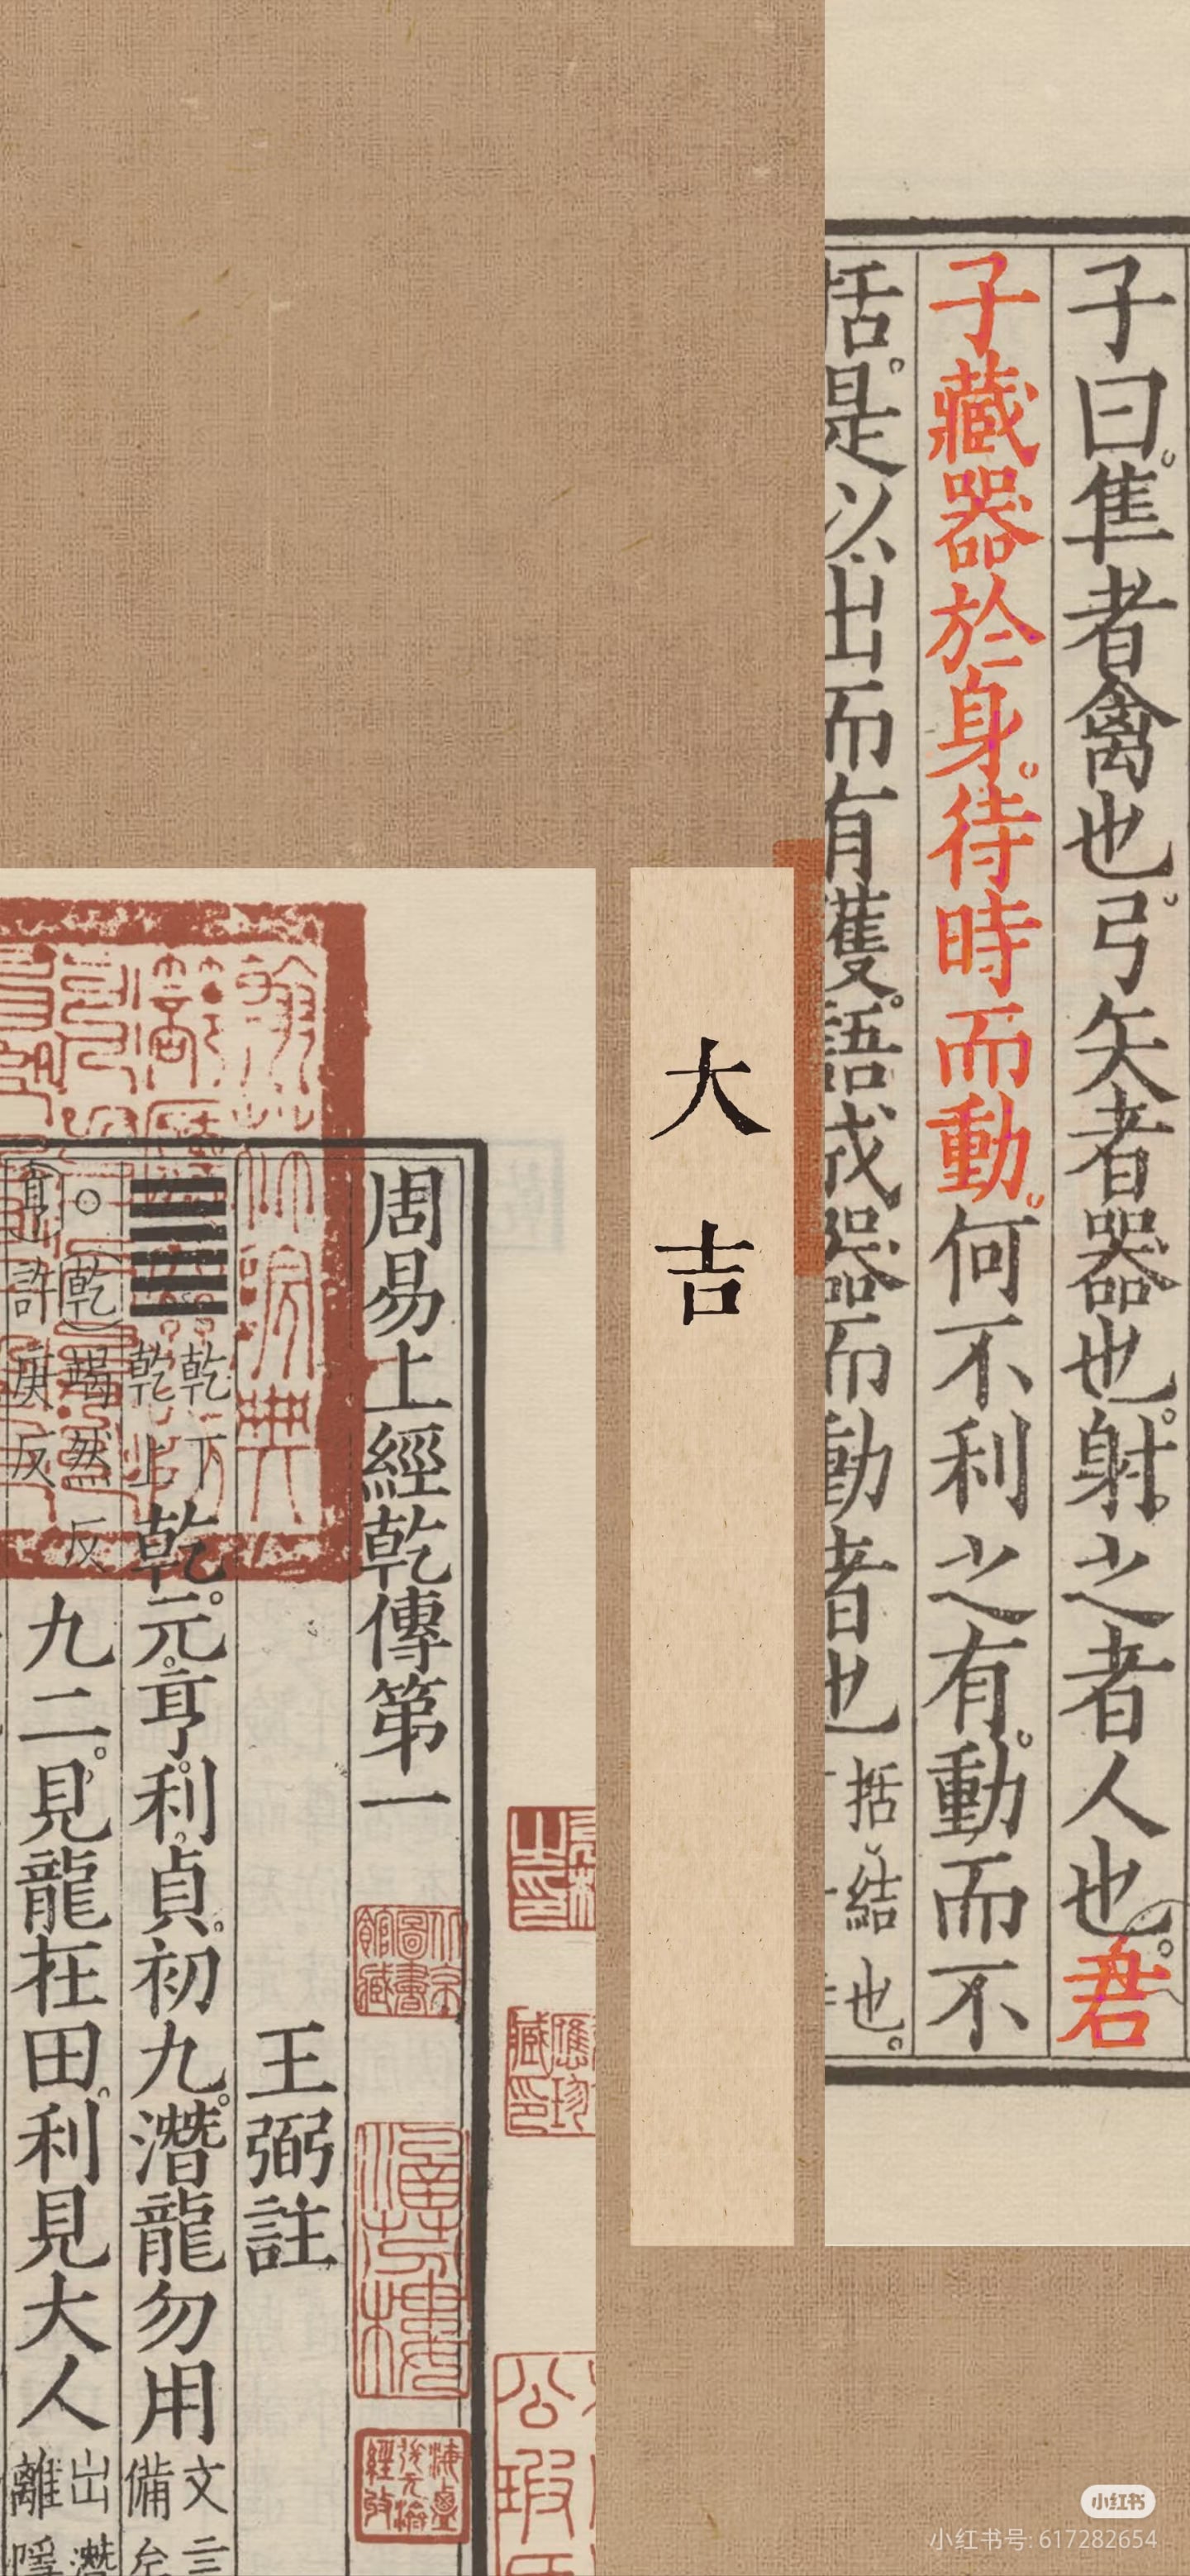 子曰隼者禽也弓矢者器也射之者人也君
子藏器於身待時而動何不利之有動而不
括是以出而有獲語成器而動者也
括結
也
大吉
周易上經乾傳第一
王弼註
乾下
乾上
乾元亨利貞初九潛龍勿用
文言
備矣
○乾竭然反
亨許庚反
九二見龍在田利見大人
出潛
離隱
小红书
小红书号: 617282654